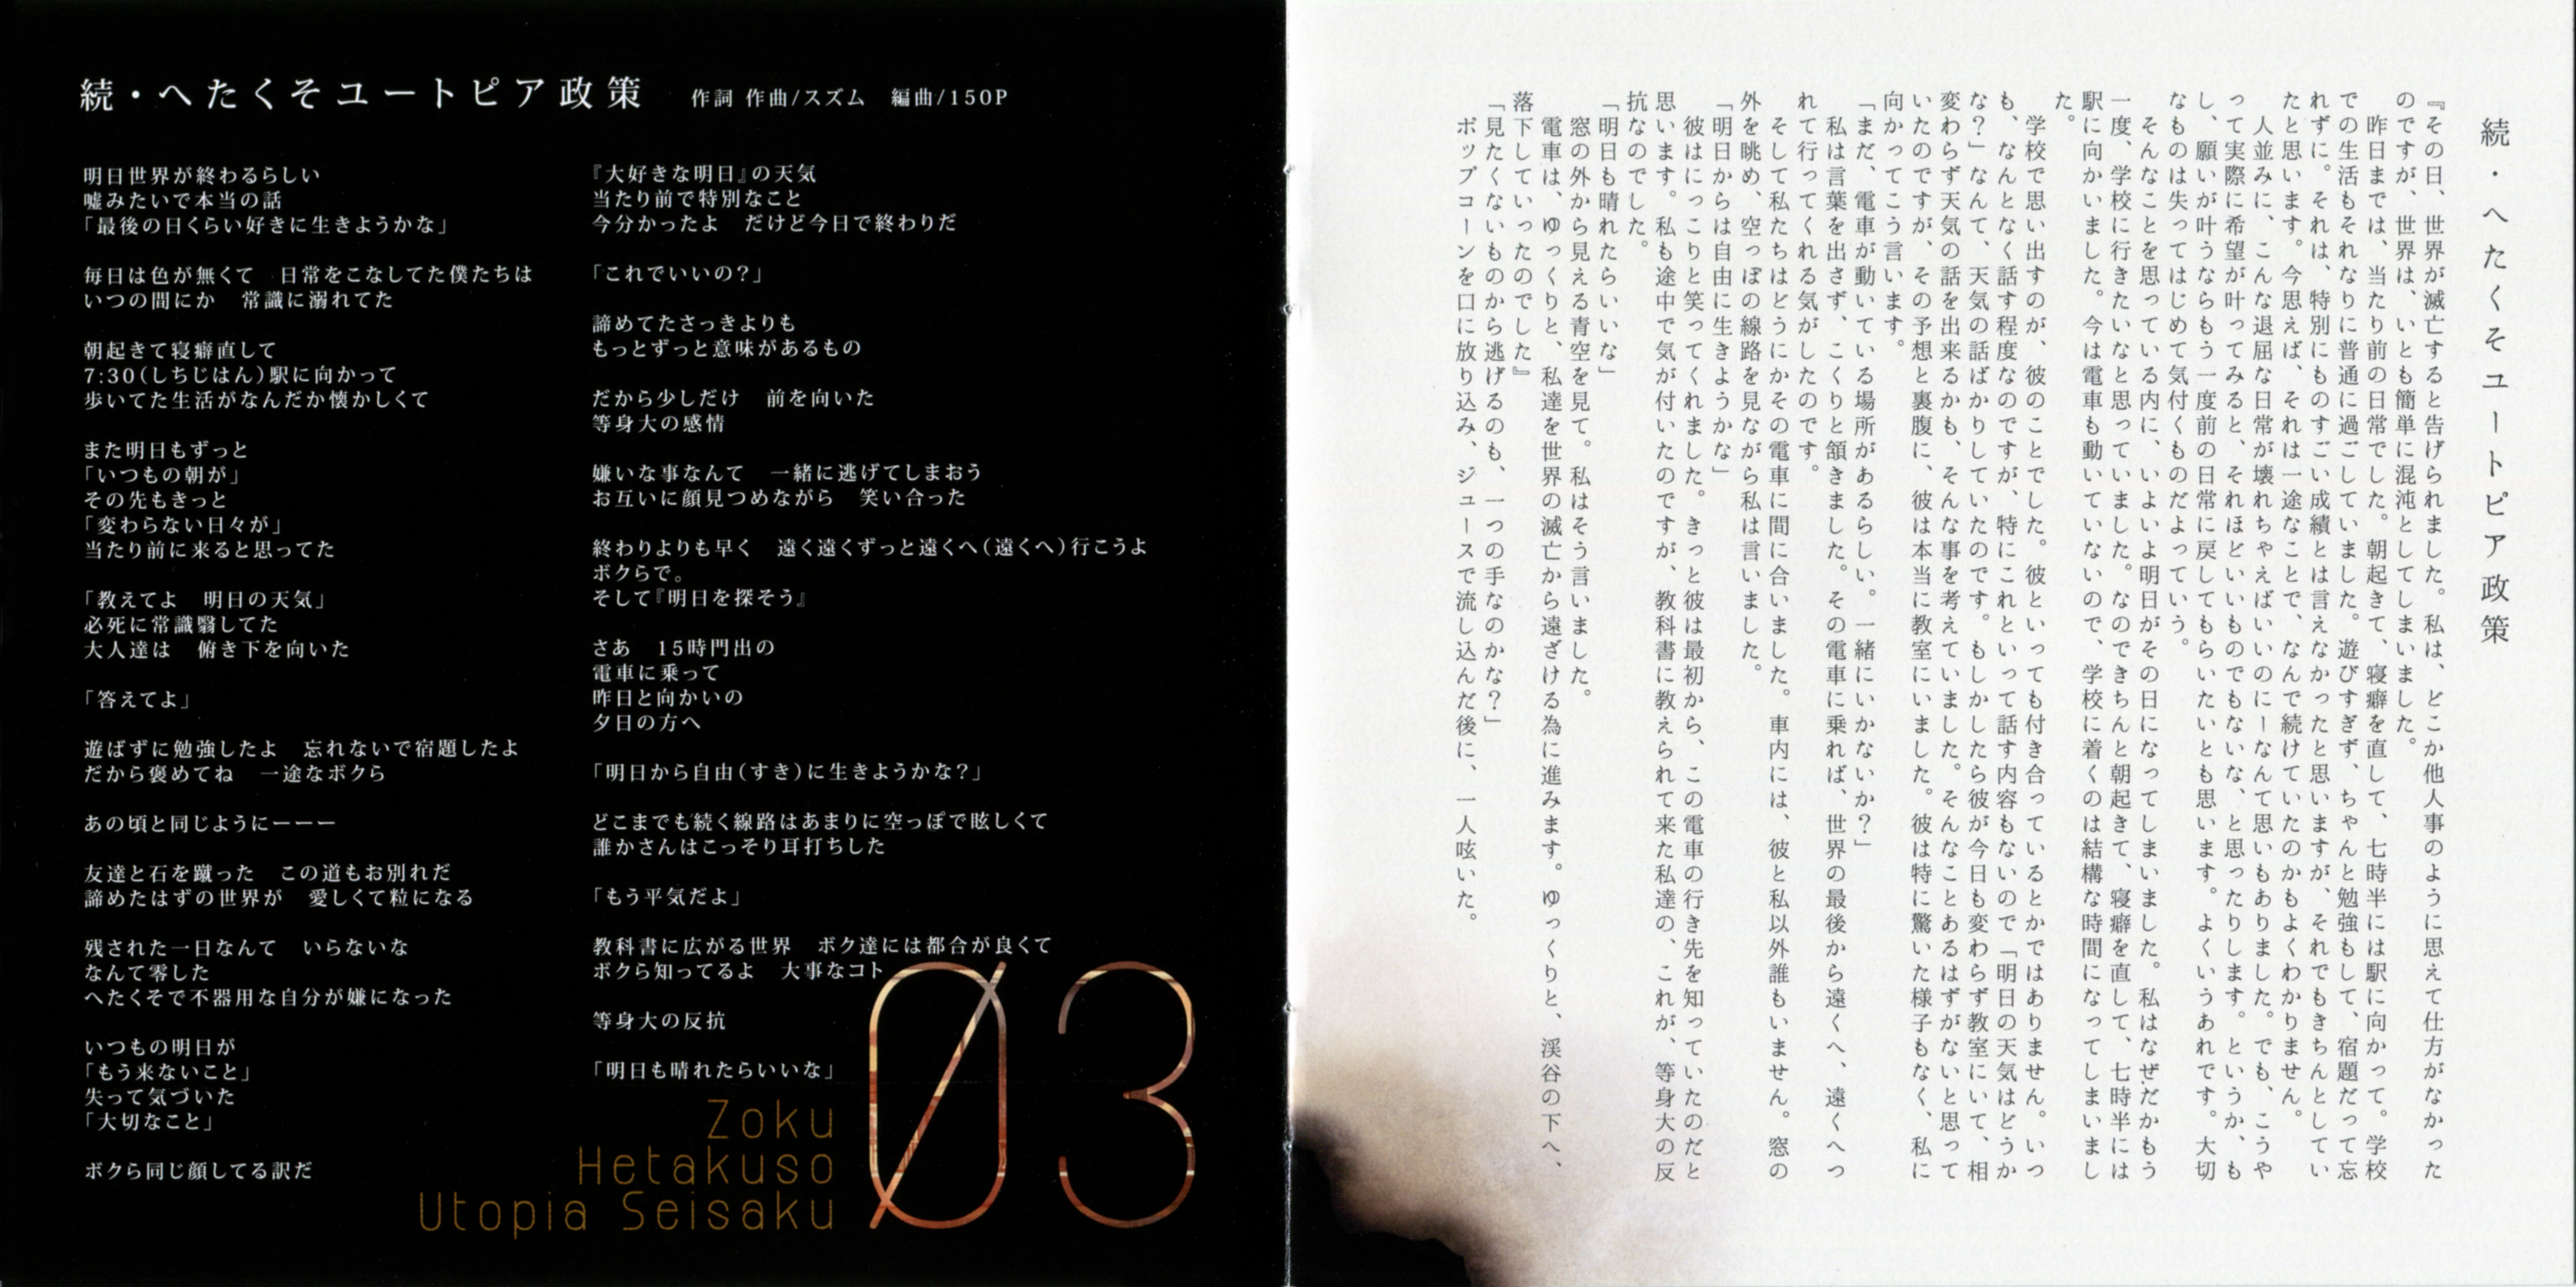 続・へたくそユートピア政策　作詞 作曲/スズム　編曲/150P
明日世界が終わるらしい
嘘みたいで本当の話
「最後の日くらい好きに生きようかな」
毎日は色が無くて　日常をこなしてた僕たちは
いつの間にか　常識に溺れてた
朝起きて寝癖直して
7:30(しちじはん)駅に向かって
歩いてた生活がなんだか懐かしくて
また明日もずっと
「いつもの朝が」
その先もきっと
「変わらない日々が」
当たり前に来ると思ってた
「教えてよ　明日の天気」
必死に常識翳してた
大人達は　俯き下を向いた
「答えてよ」
遊ばずに勉強したよ　忘れないで宿題したよ
だから褒めてね　一途なボクら
あの頃と同じようにーーー
友達と石を蹴った　この道もお別れだ
諦めたはずの世界が　愛しくて粒になる
残された一日なんて　いらないな
なんて零した
へたくそで不器用な自分が嫌になった
いつもの明日が
「もう来ないこと」
失って気づいた
「大切なこと」
ボクら同じ顔してる訳だ
『大好きな明日』の天気
当たり前で特別なこと
今分かったよ　だけど今日で終わりだ
「これでいいの?」
諦めてたさっきよりも
もっとずっと意味があるもの
だから少しだけ　前を向いた
等身大の感情
嫌いな事なんて　一緒に逃げてしまおう
お互いに顔見つめながら　笑い合った
終わりよりも早く　遠く遠くずっと遠くへ(遠くへ)行こうよ
ボクらで。
そして『明日を探そう』
さあ　15時門出の
電車に乗って
昨日と向かいの
夕日の方へ
「明日から自由(すき)に生きようかな?」
どこまでも続く線路はあまりに空っぽで眩しくて
誰かさんはこっそり耳打ちした
「もう平気だよ」
教科書に広がる世界　ボク達には都合が良くて
ボクら知ってるよ　大事なコト
等身大の反抗
「明日も晴れたらいいな」
Zoku
Hetakuso
Utopia Seisaku
03
続・へたくそユートピア政策
『その日、世界が滅亡すると告げられました。私は、どこか他人事のように思えて仕方がなかった
のですが、世界は、いとも簡単に混沌としてしまいました。
昨日までは、当たり前の日常でした。朝起きて、寝癖を直して、七時半には駅に向かって。学校
での生活もそれなりに普通に過ごしていました。遊びすぎず、ちゃんと勉強もして、宿題だって忘
れずに。それは、特別にものすごい成績とは言えなかったと思いますが、それでもきちんとしてい
たと思います。今思えば、それは一途なことで、なんで続けていたのかもよくわかりません。
人並みに、こんな退屈な日常が壊れちゃえばいいのにーなんて思いもありました。でも、こうや
って実際に希望が叶ってみると、それほどいいものでもないな、と思ったりします。というか、も
し、願いが叶うならもう一度前の日常に戻してもらいたいとも思います。よくいうあれです。大切
なものは失ってはじめて気付くものだよっていう。
そんなことを思っている内に、いよいよ明日がその日になってしまいました。私はなぜだかもう
一度、学校に行きたいなと思っていました。なのできちんと朝起きて、寝癖を直して、七時半には
駅に向かいました。今は電車も動いていないので、学校に着くのは結構な時間になってしまいまし
た。
学校で思い出すのが、彼のことでした。彼といっても付き合っているとかではありません。いつ
も、なんとなく話す程度なのですが、特にこれといって話す内容もないので「明日の天気はどうか
な?」なんて、天気の話ばかりしていたのです。もしかしたら彼が今日も変わらず教室にいて、相
変わらず天気の話を出来るかも、そんな事を考えていました。そんなことあるはずがないと思って
いたのですが、その予想と裏腹に、彼は本当に教室にいました。彼は特に驚いた様子もなく、私に
向かってこう言います。
「まだ、電車が動いている場所があるらしい。一緒にいかないか?」
私は言葉を出さず、こくりと頷きました。その電車に乗れば、世界の最後から遠くへ、遠くへつ
れて行ってくれる気がしたのです。
そして私たちはどうにかその電車に間に合いました。車内には、彼と私以外誰もいません。窓の
外を眺め、空っぽの線路を見ながら私は言いました。
「明日からは自由に生きようかな」
彼はにっこりと笑ってくれました。きっと彼は最初から、この電車の行き先を知っていたのだと
思います。私も途中で気が付いたのですが、教科書に教えられて来た私達の、これが、等身大の反
抗なのでした。
「明日も晴れたらいいな」
窓の外から見える青空を見て。私はそう言いました。
電車は、ゆっくりと、私達を世界の滅亡から遠ざける為に進みます。ゆっくりと、渓谷の下へ、
落下していったのでした』
「見たくないものから逃げるのも、一つの手なのかな?」
ポップコーンを口に放り込み、ジュースで流し込んだ後に、一人呟いた。